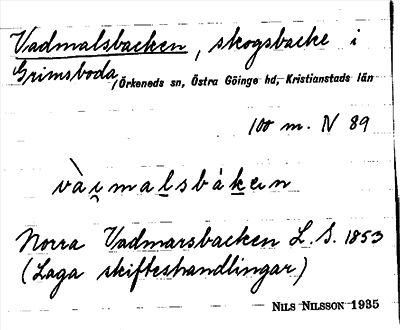 Vadmalsbacken, skogsbacke i
Grimsboda, Örkeneds sn, Östra Göinge hd, Kristianstads län
100 m. N 89
Norra Vadmarsbacken L. S. 1853
(Laga skifteshandlingar)
NILS NILSSON 1935